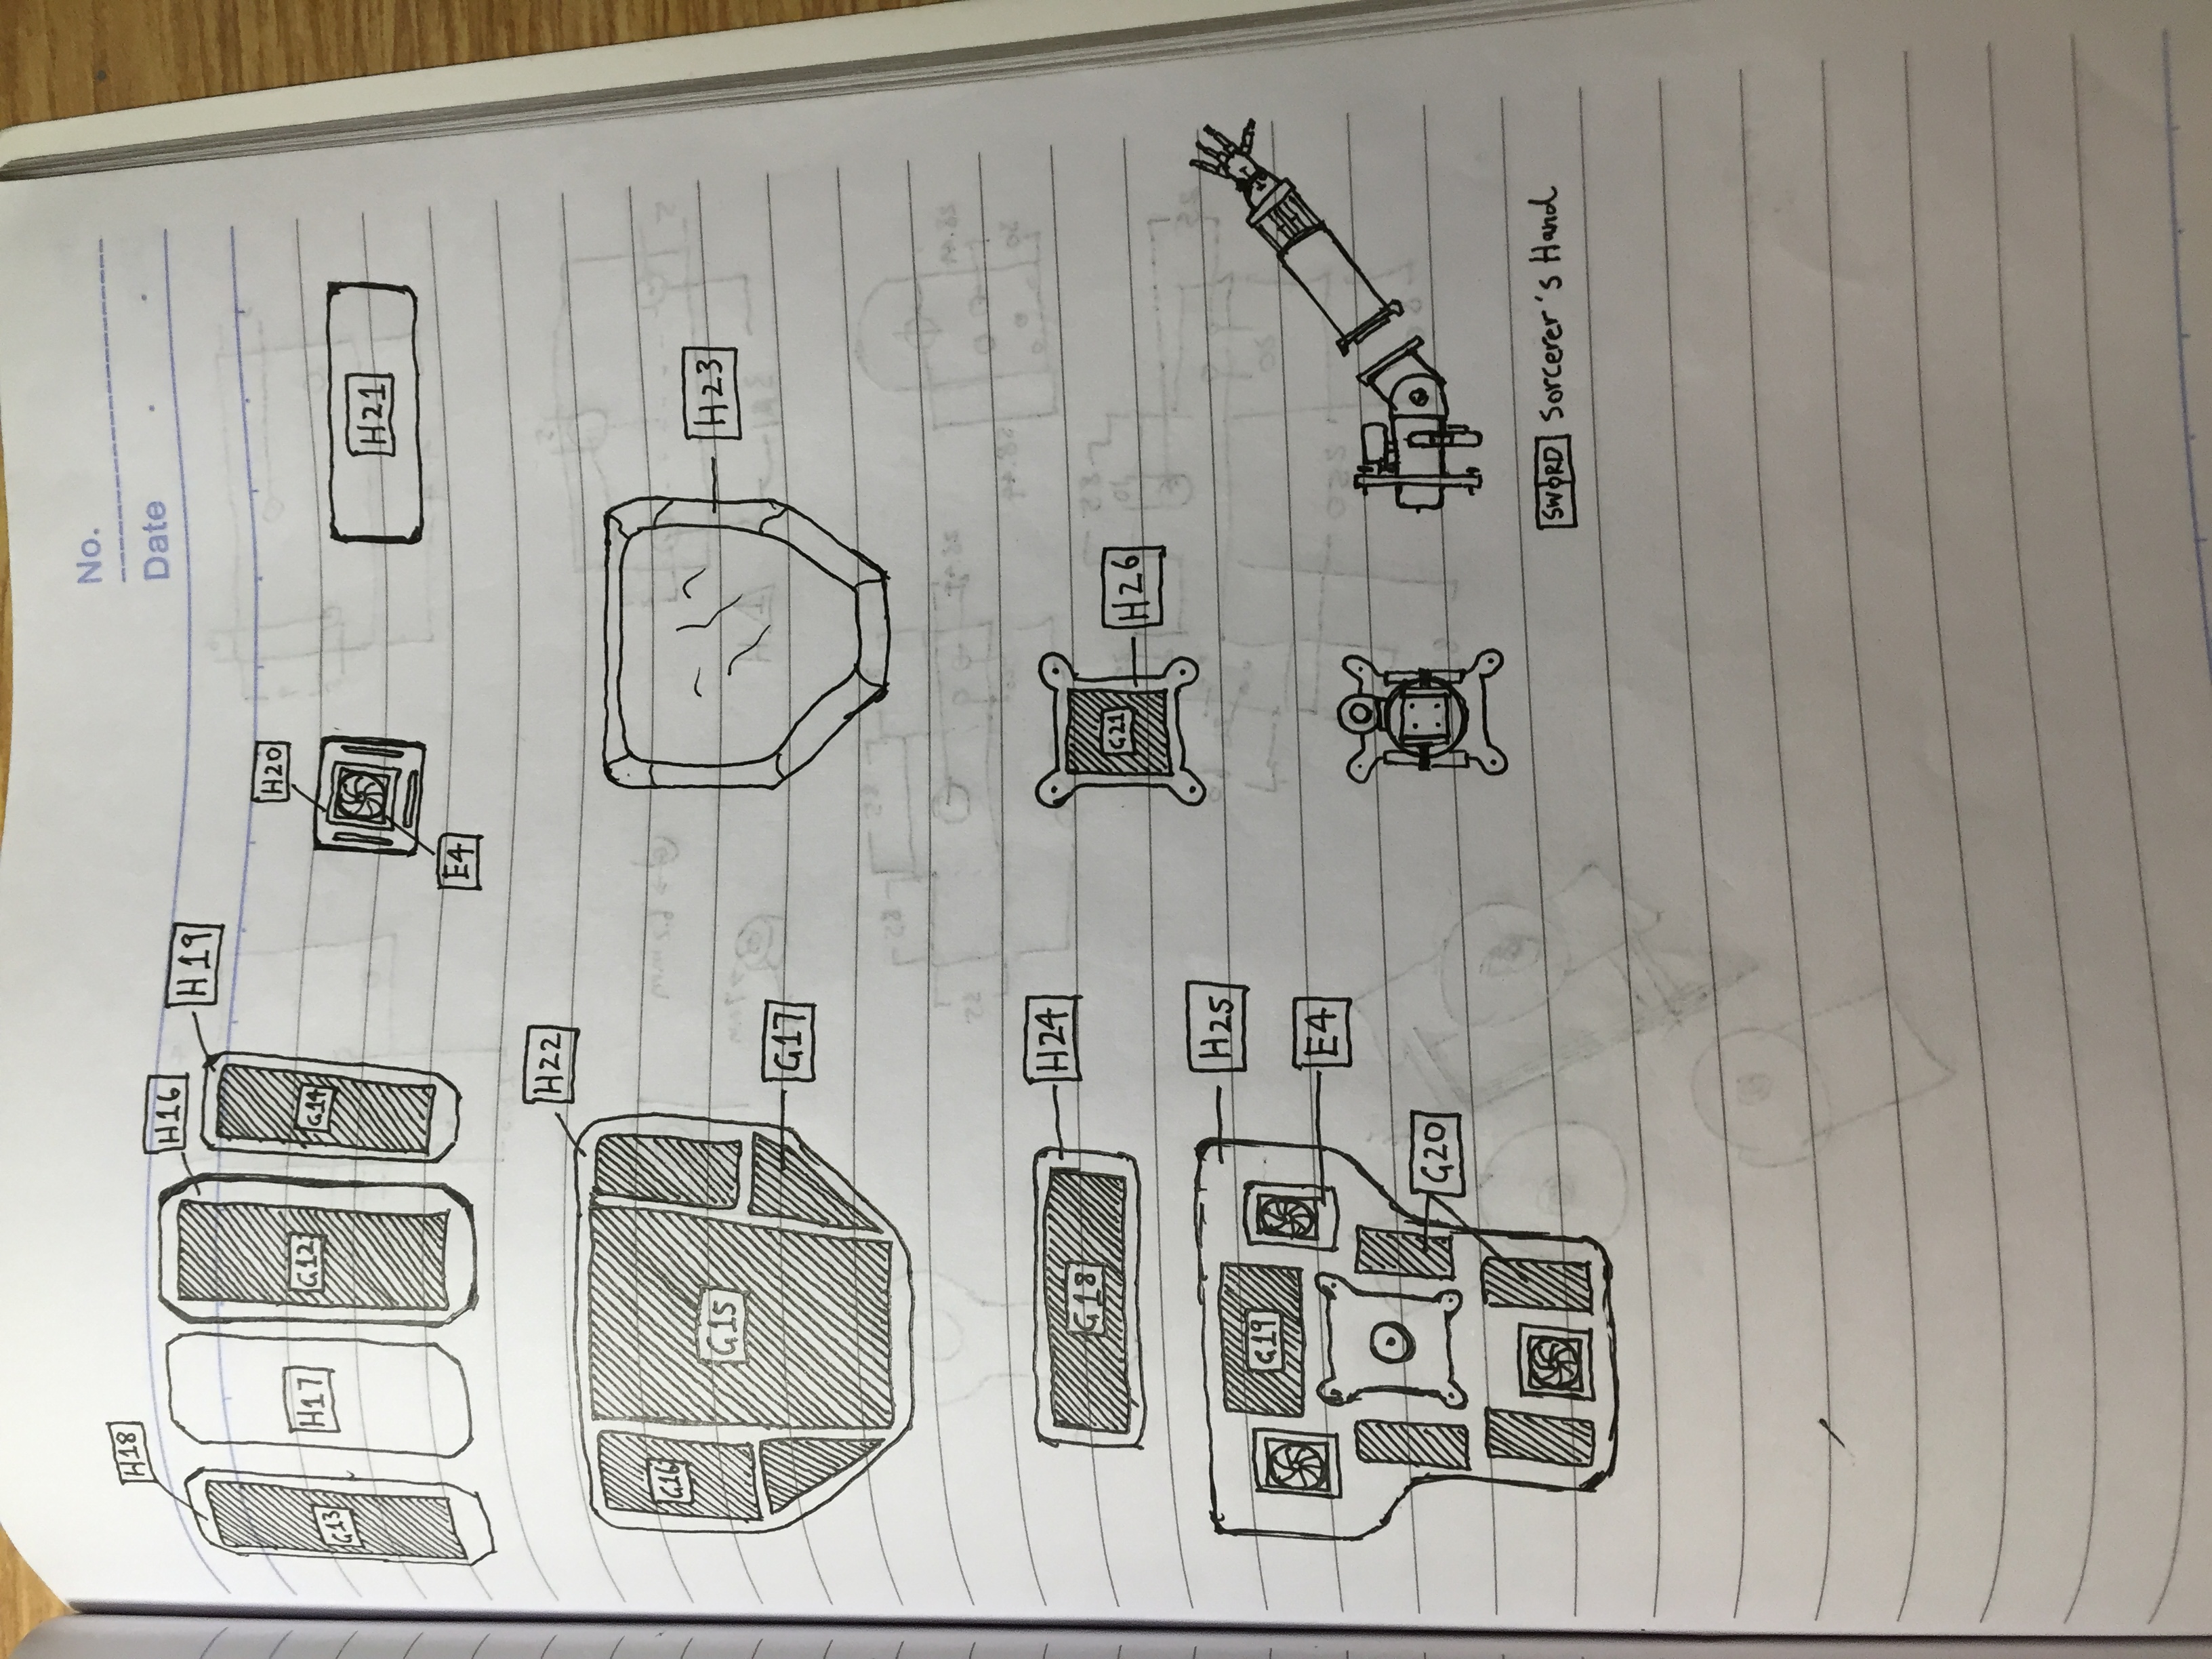 No.
Date
H18
H16
H19
G13
H17
G12
G14
H20
E4
H21
H22
G16
G15
G17
H23
H24
G18
G21
H26
H25
G19
E4
G20
SWORD Sorcerer's Hand